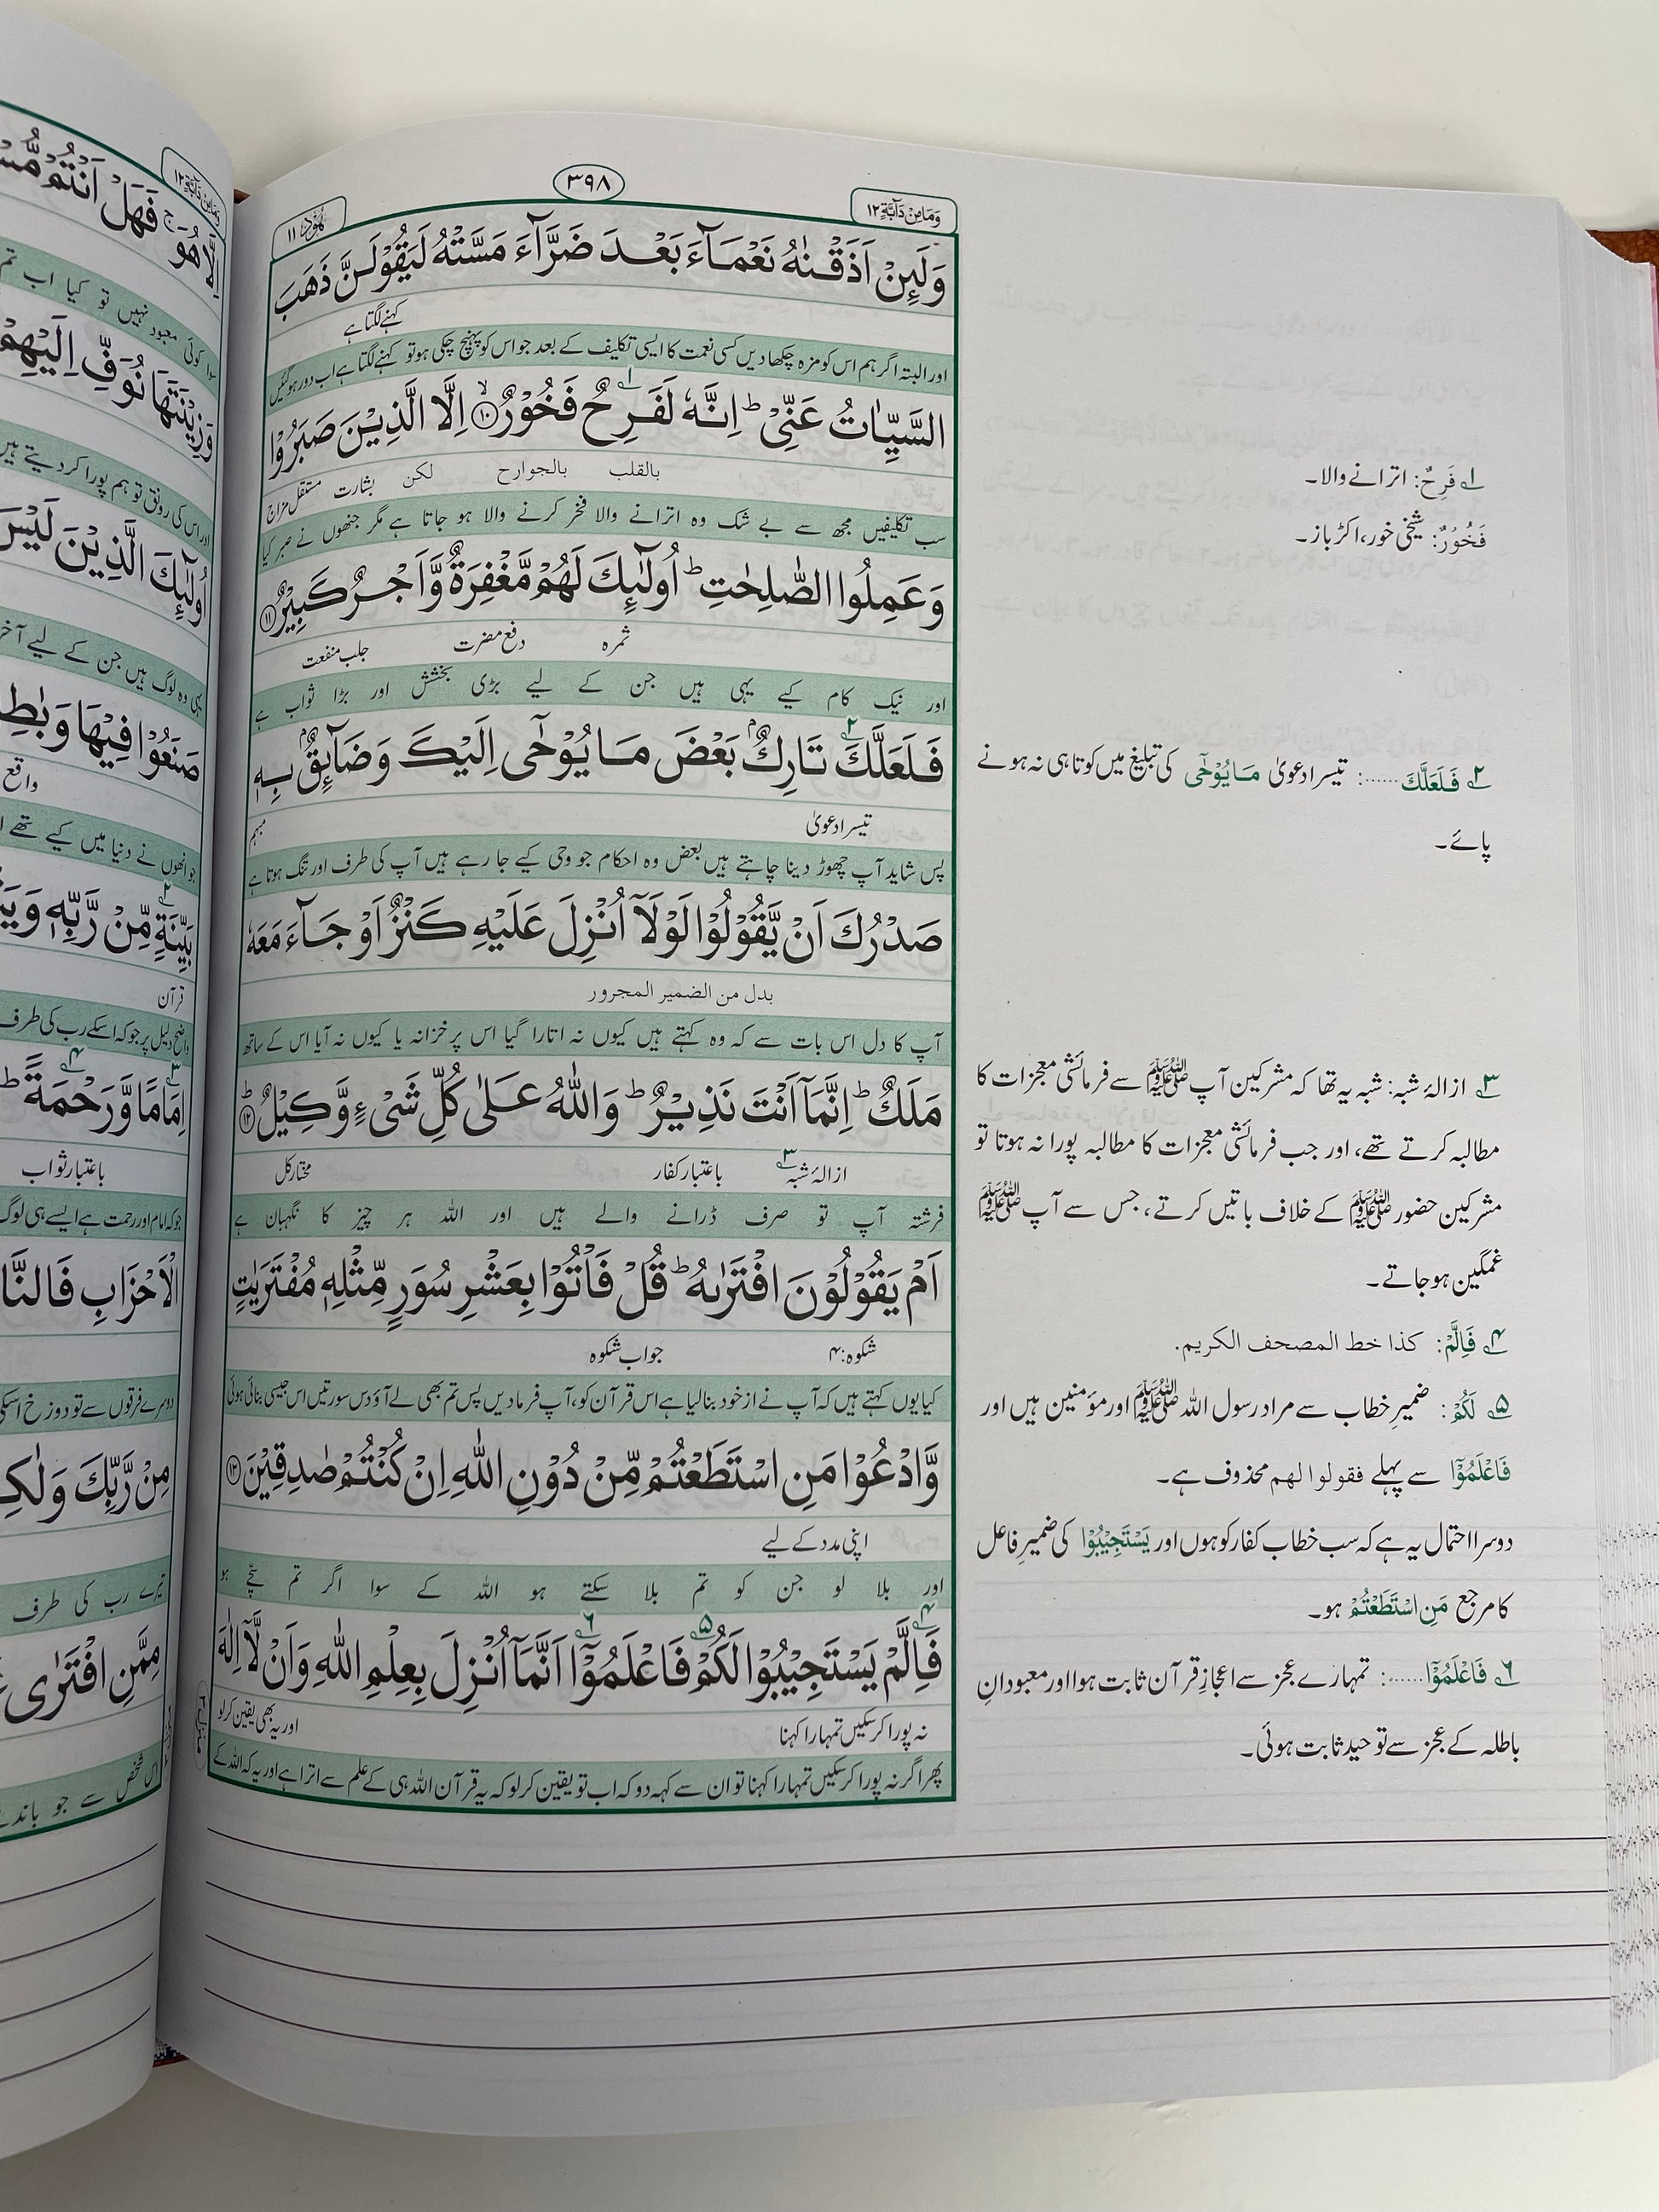 وَمَا مِنْ دَآبَّةٍ ١٢
٣٩٨
هُوْد ١١
وَلَئِنْ اَذَقْنٰهُ نَعْمَآءَ بَعْدَ ضَرَّآءَ مَسَّتْهُ لَيَقُوْلَنَّ ذَهَبَ
کہنے لگتا ہے
اور البتہ اگر ہم اس کو مزہ چکھا دیں کسی نعمت کا ایسی تکلیف کے بعد جو اس کو پہنچ چکی ہو تو کہنے لگتا ہے اب دور ہوگئیں
السَّيِّاٰتُ عَنِّيْ ؕ اِنَّهٗ لَفَرِحٌ ١ فَخُوْرٌ ۙ﴿١٠﴾ اِلَّا الَّذِيْنَ صَبَرُوْا
بالقلب بالجوارح لكن بشارت مستقل مزاج
سب تکلیفیں مجھ سے بے شک وہ اترانے والا فخر کرنے والا ہو جاتا ہے مگر جنھوں نے صبر کیا
وَعَمِلُوا الصّٰلِحٰتِ ؕ اُولٰٓئِكَ لَهُمْ مَّغْفِرَةٌ وَّاَجْرٌ كَبِيْرٌ ﴿١١﴾
ثمرہ دفع مضرت جلب منفعت
اور نیک کام کیے یہی ہیں جن کے لیے بڑی بخشش اور بڑا ثواب ہے
فَلَعَلَّكَ ٢ تَارِكٌۢ بَعْضَ مَا يُوْحٰٓى اِلَيْكَ وَضَآئِقٌۢ بِهٖ
تیسرا دعویٰ مبہم
پس شاید آپ چھوڑ دینا چاہتے ہیں بعض وہ احکام جو وحی کیے جا رہے ہیں آپ کی طرف اور تنگ ہوتا ہے
صَدْرُكَ اَنْ يَّقُوْلُوْا لَوْلَآ اُنْزِلَ عَلَيْهِ كَنْزٌ اَوْ جَآءَ مَعَهٗ
بدل من الضمير المجرور
آپ کا دل اس بات سے کہ وہ کہتے ہیں کیوں نہ اتارا گیا اس پر خزانہ یا کیوں نہ آیا اس کے ساتھ
مَلَكٌ ؕ اِنَّمَآ اَنْتَ نَذِيْرٌ ؕ وَاللّٰهُ عَلٰى كُلِّ شَيْءٍ وَّكِيْلٌ ؕ﴿١٢﴾
ازالۂ شبہ ٣ باعتبار کفار مختار کل
فرشتہ آپ تو صرف ڈرانے والے ہیں اور اللہ ہر چیز کا نگہبان ہے
اَمْ يَقُوْلُوْنَ افْتَرٰىهُ ؕ قُلْ فَاْتُوْا بِعَشْرِ سُوَرٍ مِّثْلِهٖ مُفْتَرَيٰتٍ
شکوہ: ۴ جواب شکوہ
کیا یوں کہتے ہیں کہ آپ نے از خود بنا لیا ہے اس قرآن کو، آپ فرمادیں پس تم بھی لے آؤ دس سورتیں اس جیسی بنائی ہوئی
وَّادْعُوْا مَنِ اسْتَطَعْتُمْ مِّنْ دُوْنِ اللّٰهِ اِنْ كُنْتُمْ صٰدِقِيْنَ ﴿١٣﴾
اپنی مدد کے لیے
اور بلا لو جن کو تم بلا سکتے ہو اللہ کے سوا اگر تم سچے ہو
فَاِلَّمْ ۴ يَسْتَجِيْبُوْا لَكُمْ ۵ فَاعْلَمُوْٓا ۶ اَنَّمَآ اُنْزِلَ بِعِلْمِ اللّٰهِ وَاَنْ لَّآ اِلٰهَ
نہ پورا کر سکیں تمہارا کہنا اور یہ بھی یقین کر لو
پھر اگر نہ پورا کر سکیں تمہارا کہنا تو ان سے کہہ دو کہ اب تو یقین کر لو کہ یہ قرآن اللہ ہی کے علم سے اترا ہے اور یہ کہ اللہ کے
١ فَرِحٌ: اترانے والا۔
فَخُوْرٌ: شیخی خور، اکڑ باز۔
٢ فَلَعَلَّكَ......: تیسرا دعویٰ مَا يُوْحٰٓى کی تبلیغ میں کوتاہی نہ ہونے
پائے۔
٣ ازالۂ شبہ: شبہ یہ تھا کہ مشرکین آپ ﷺ سے فرمائشی معجزات کا
مطالبہ کرتے تھے، اور جب فرمائشی معجزات کا مطالبہ پورا نہ ہوتا تو
مشرکین حضور ﷺ کے خلاف باتیں کرتے، جس سے آپ ﷺ
غمگین ہو جاتے۔
۴ فَاِلَّمْ: كذا خط المصحف الكريم.
۵ لَكُمْ: ضمیرِ خطاب سے مراد رسول اللہ ﷺ اور مؤمنین ہیں اور
فَاعْلَمُوْٓا سے پہلے فقولوا لهم محذوف ہے۔
دوسرا احتمال یہ ہے کہ سب خطاب کفار کو ہوں اور يَسْتَجِيْبُوْا کی ضمیرِ فاعل
کا مرجع مَنِ اسْتَطَعْتُمْ ہو۔
۶ فَاعْلَمُوْٓا......: تمہارے عجز سے اعجازِ قرآن ثابت ہوا اور معبودانِ
باطلہ کے عجز سے توحید ثابت ہوئی۔
وَمَا مِنْ دَآبَّةٍ ١٢
اِلَّا هُوَ ۚ فَهَلْ اَنْتُمْ
سوا کوئی معبود نہیں تو کیا اب تم
وَزِيْنَتَهَا نُوَفِّ اِلَيْهِمْ
اور اس کی رونق تو ہم پورا کر دیتے ہیں
اُولٰٓئِكَ الَّذِيْنَ لَيْسَ
یہی وہ لوگ ہیں جن کے لیے
صَنَعُوْا فِيْهَا وَبٰطِلٌ
واقع
جو انھوں نے دنیا میں کیے تھے
بَيِّنَةٍ ٢ مِّنْ رَّبِّهٖ
قرآن
واضح دلیل پر جو کہ اسکے رب کی طرف
اِمَامًا ٣ وَّرَحْمَةً ۴ ؕ
باعتبار ثواب
جو کہ امام اور رحمت ہے ایسے ہی لوگ
الْاَحْزَابِ فَالنَّارُ
دوسرے فرقوں سے تو دوزخ
مِنْ رَّبِّكَ وَلٰكِنَّ
تیرے رب کی طرف
مِمَّنِ افْتَرٰى
اس شخص سے جو باندھے